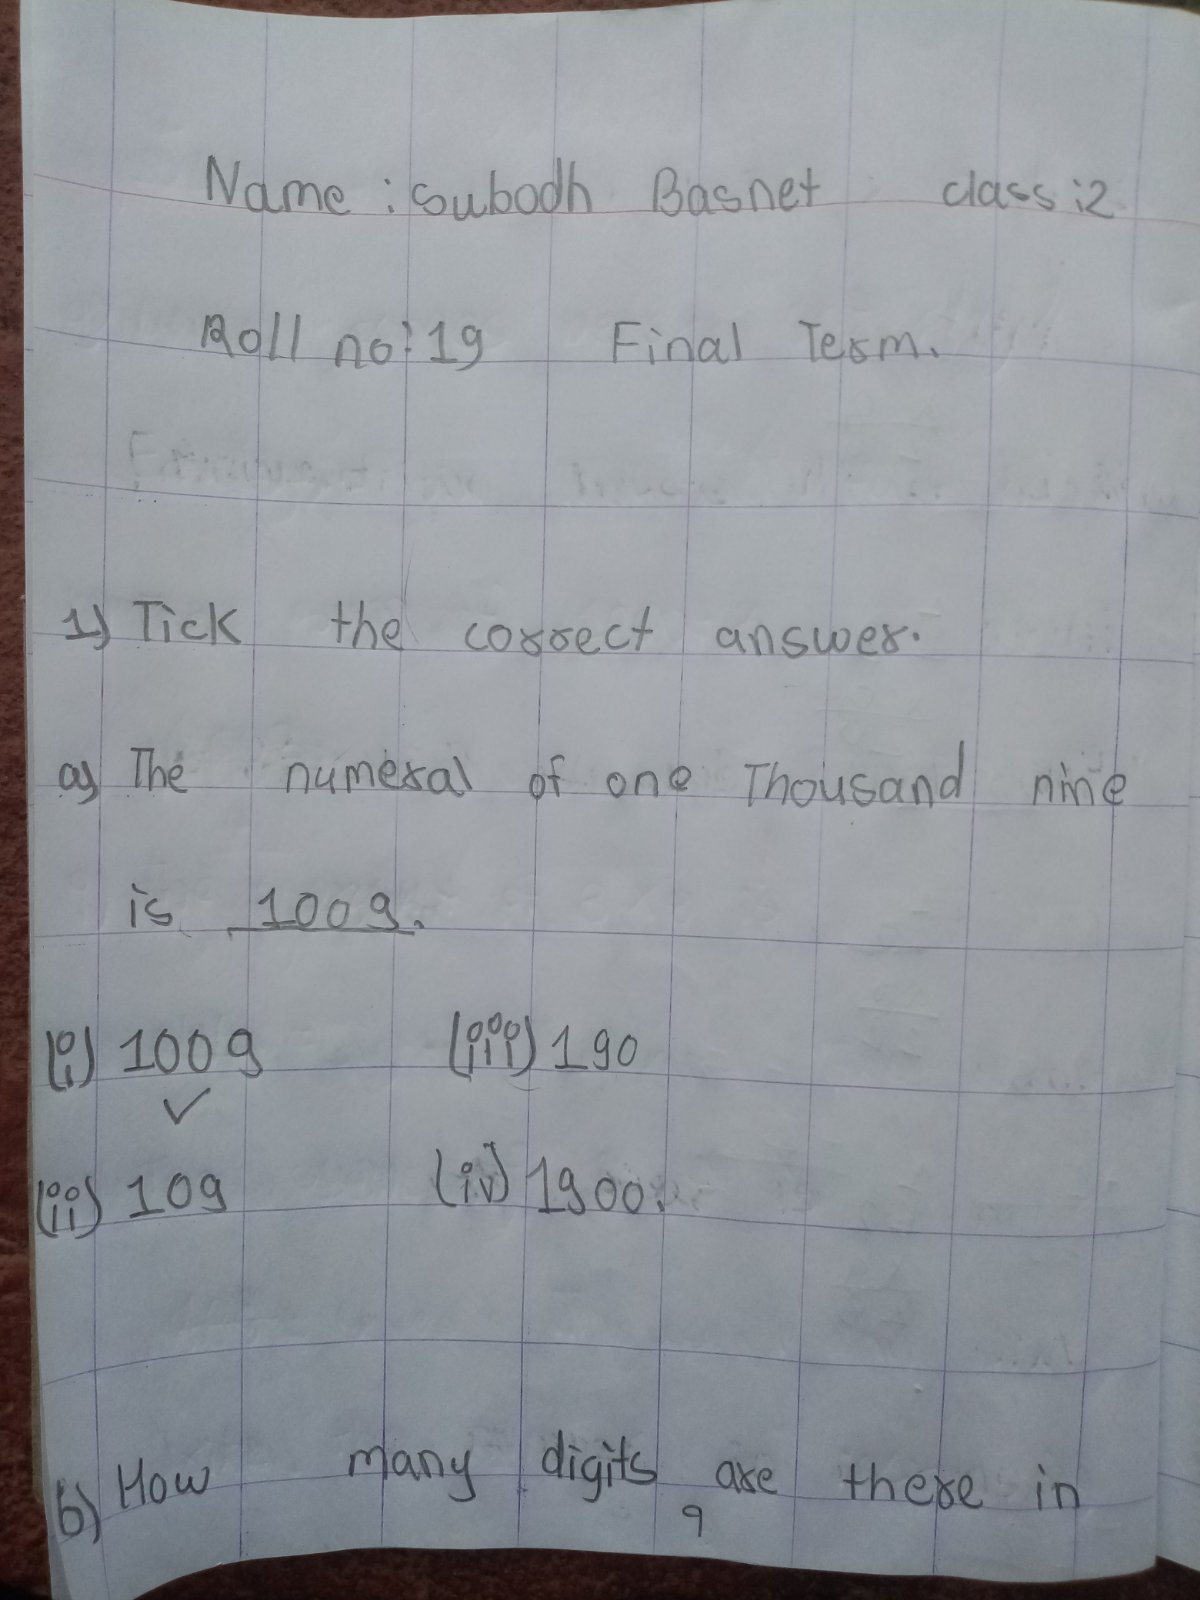 Name : Subodh Basnet class : 2
Roll no : 19 Final Term.
1) Tick the correct answer.
a) The numeral of one Thousand nine
is 1009.
(i) 1009 (iii) 190
✓
(ii) 109 (iv) 1900.
b) How many digits are there in
9